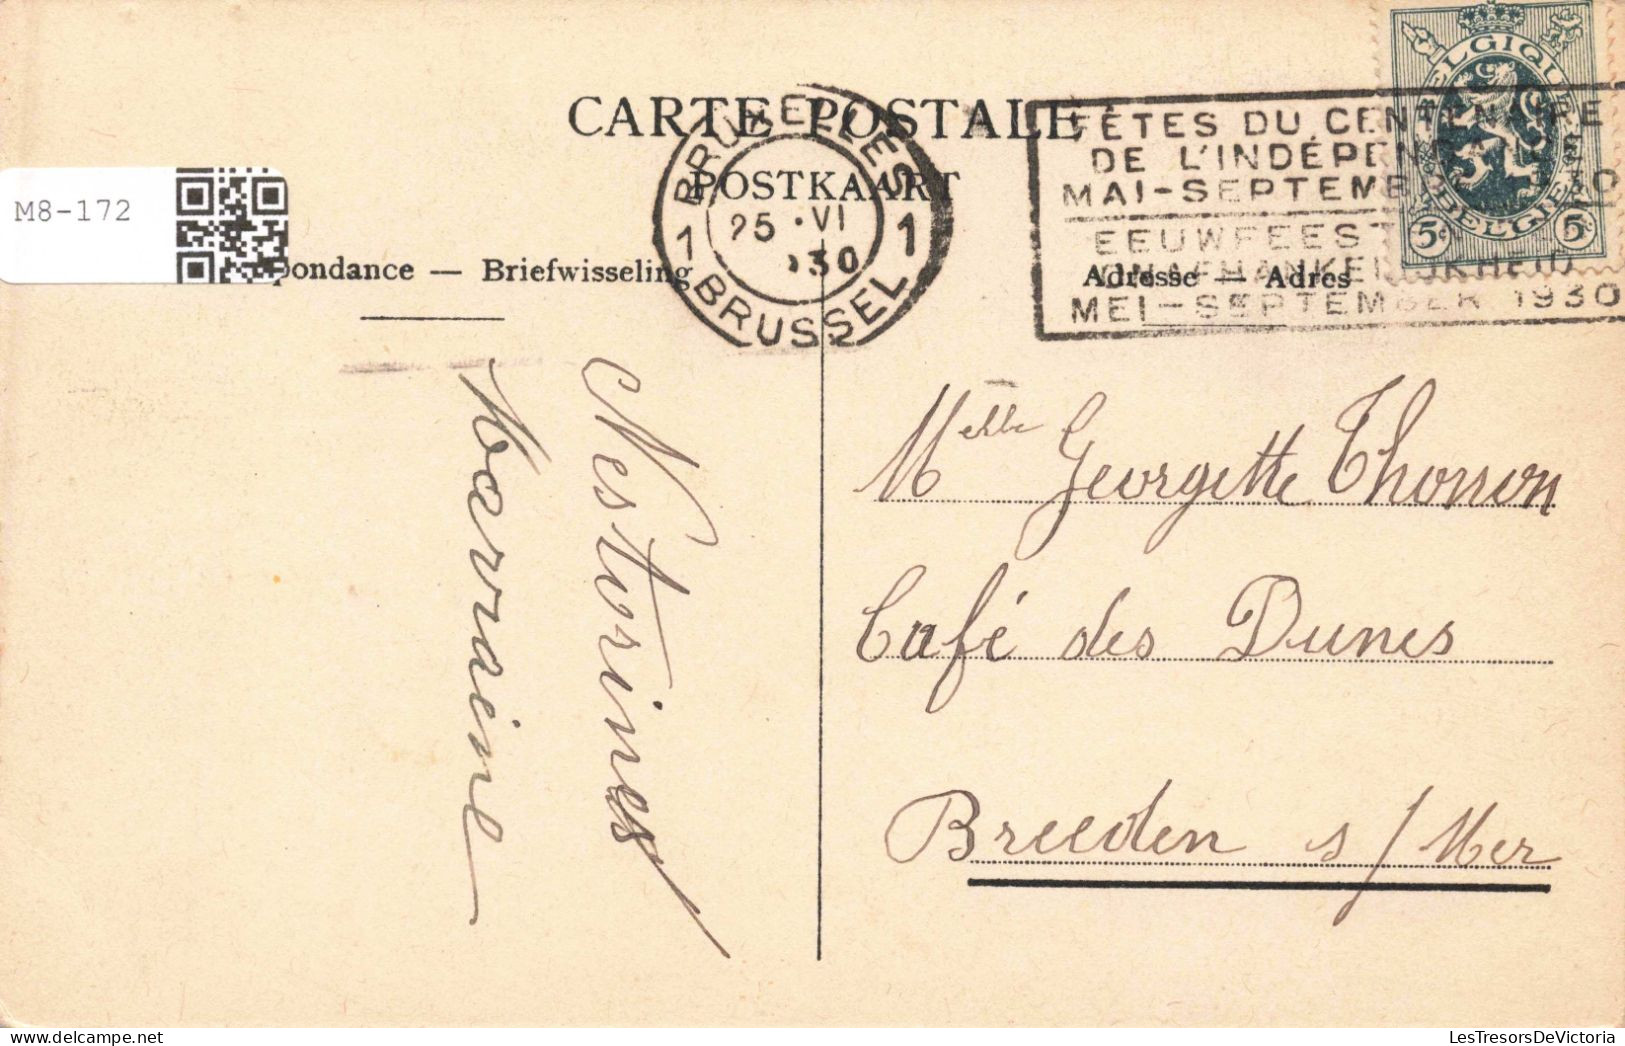 CARTE POSTALE
POSTKAART
M8-172
pondance — Briefwisseling
Adresse — Adres
BRUXELLES
1 1
25 VI
930
BRUSSEL
FÊTES DU CENTENAIRE
DE L'INDÉPENDANCE
MAI-SEPTEMBRE 1930
EEUWFEEST
ONAFHANKELIJKHEID
MEI-SEPTEMBER 1930
BELGIQUE
BELGIË
5c 5c
Marraine
Melle Georgette Thonon
Café des Dunes
Breeden s/Mer
LesTresorsDeVictoria
www.delcampe.net